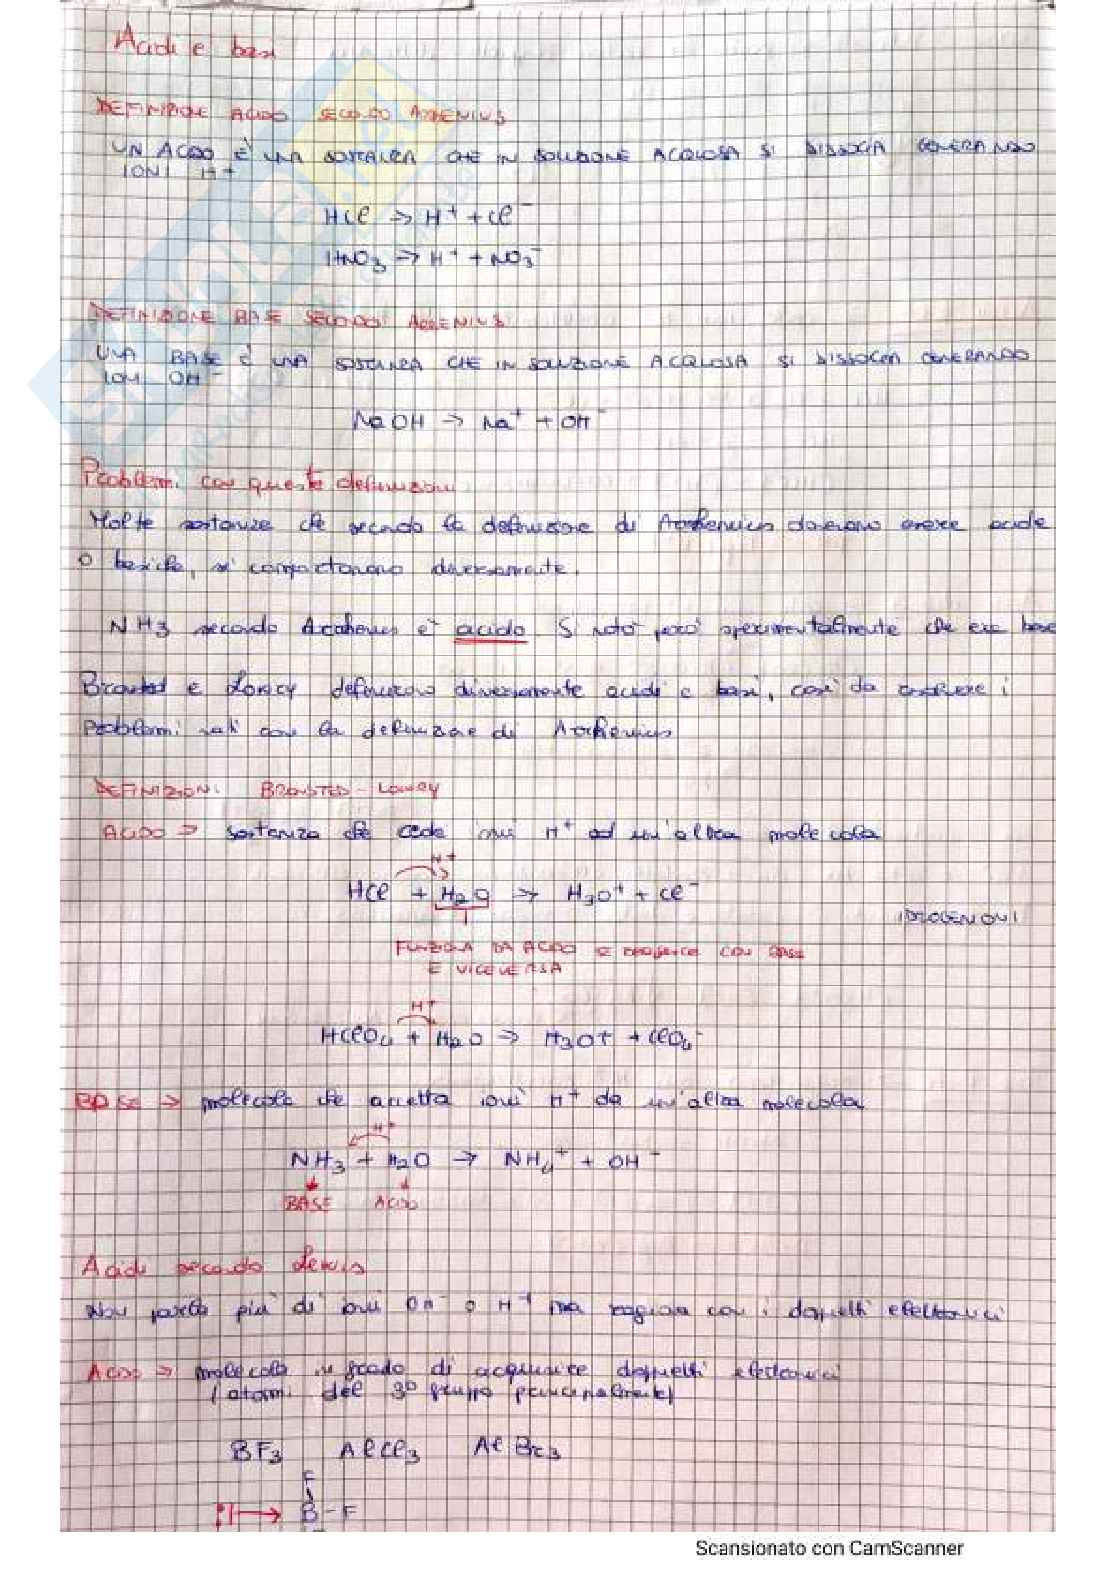 Acidi e basi
DEFINIZIONE ACIDO SECONDO ARRHENIUS
UN ACIDO È UNA SOSTANZA CHE IN SOLUZIONE ACQUOSA SI DISSOCIA GENERANDO
IONI H+
HCl → H+ + Cl-
HNO3 → H+ + NO3-
DEFINIZIONE BASE SECONDO ARRENIUS
UNA BASE È UNA SOSTANZA CHE IN SOLUZIONE ACQUOSA SI DISSOCIA GENERANDO
IONI OH-
NaOH → Na+ + OH-
Problemi con queste definizioni
Molte sostanze che secondo la definizione di Arrhenius dovevano essere acide
o basiche, si comportavano diversamente.
NH3 secondo Arrhenius è acido. Si notò però sperimentalmente che era base
Bronsted e Lowry definirono diversamente acidi e basi, così da risolvere i
problemi nati con la definizione di Arrhenius
DEFINIZIONI BRONSTED-Lowry
ACIDO → sostanza che cede ioni H+ ad un'altra molecola
H+
HCl + H2O → H3O+ + Cl-
IDROGENIONI
FUNZIONA DA ACIDO SE REAGISCE CON BASE
E VICEVERSA
H+
HClO4 + H2O → H3O+ + ClO4-
BASE → molecola che accetta ioni H+ da un'altra molecola
H+
NH3 + H2O → NH4+ + OH-
BASE ACIDO
Acidi secondo Lewis
Non parla più di ioni OH- o H+ ma ragiona con i doppietti elettronici
ACIDO → molecola in grado di acquisire doppietti elettronici
(atomi del 3° gruppo principalmente)
BF3 AlCl3 AlBr3
F
B-F
Scansionato con CamScanner